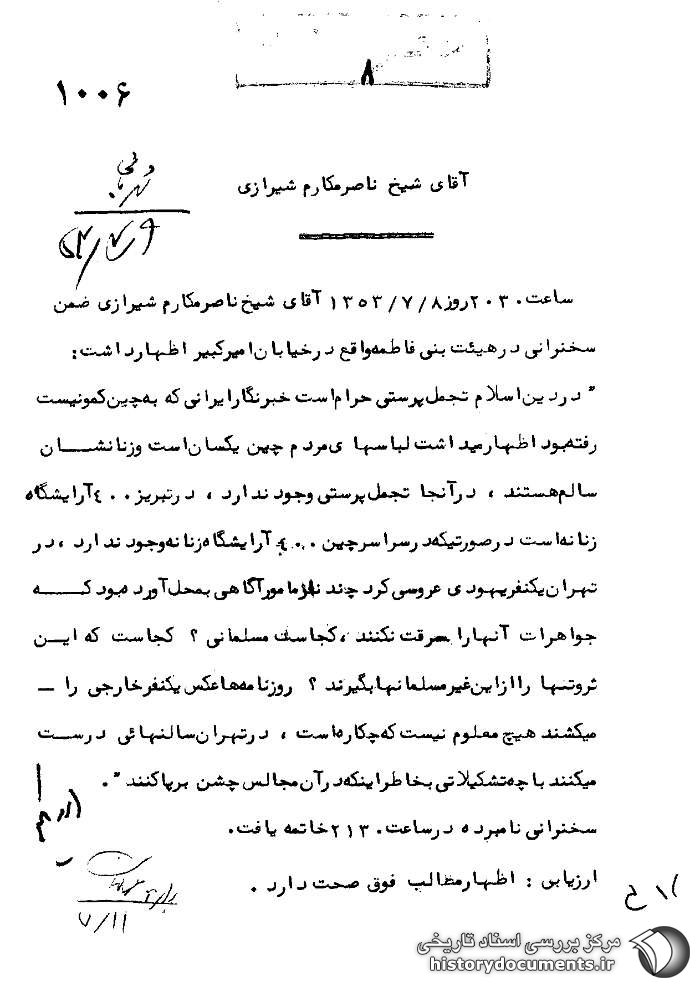 ۸
۱۰۰۶
آقای شیخ ناصرمکارم شیرازی
ساعت ۲۰۳۰ روز ۱۳۵۳/۷/۸ آقای شیخ ناصرمکارم شیرازی ضمن
سخنرانی در هیئت بنی فاطمه واقع در خیابان امیرکبیر اظهارداشت:
" در دین اسلام تجمل پرستی حرام است خبرنگار ایرانی که به چین کمونیست
رفته بود اظهار میداشت لباسهای مردم چین یکسان است وزنانشان
سالم هستند ، در آنجا تجمل پرستی وجود ندارد ، در تبریز ۴۰۰ آرایشگاه
زنانه است در صورتیکه در سراسر چین ۴۰۰ آرایشگاه زنانه وجود ندارد ، در
تهران یکنفریهودی عروسی کرد چند نفر مامور آگاهی بمحل آورده بود که
جواهرات آنها را سرقت نکنند ، کجاست مسلمانی ؟ کجاست که این
ثروتها را از این غیرمسلمانها بگیرند ؟ روزنامه ها عکس یکنفر خارجی را ـ
میکشند هیچ معلوم نیست که چکاره است ، در تهران سالنهائی درست
میکنند با چه تشکیلاتی بخاطر اینکه در آن مجالس جشن برپا کنند " .
سخنرانی نامبرده در ساعت ۲۱۳۰ خاتمه یافت.
ارزیابی : اظهار مطالب فوق صحت دارد .
۷/۱۱
مرکز بررسی اسناد تاریخی
historydocuments.ir